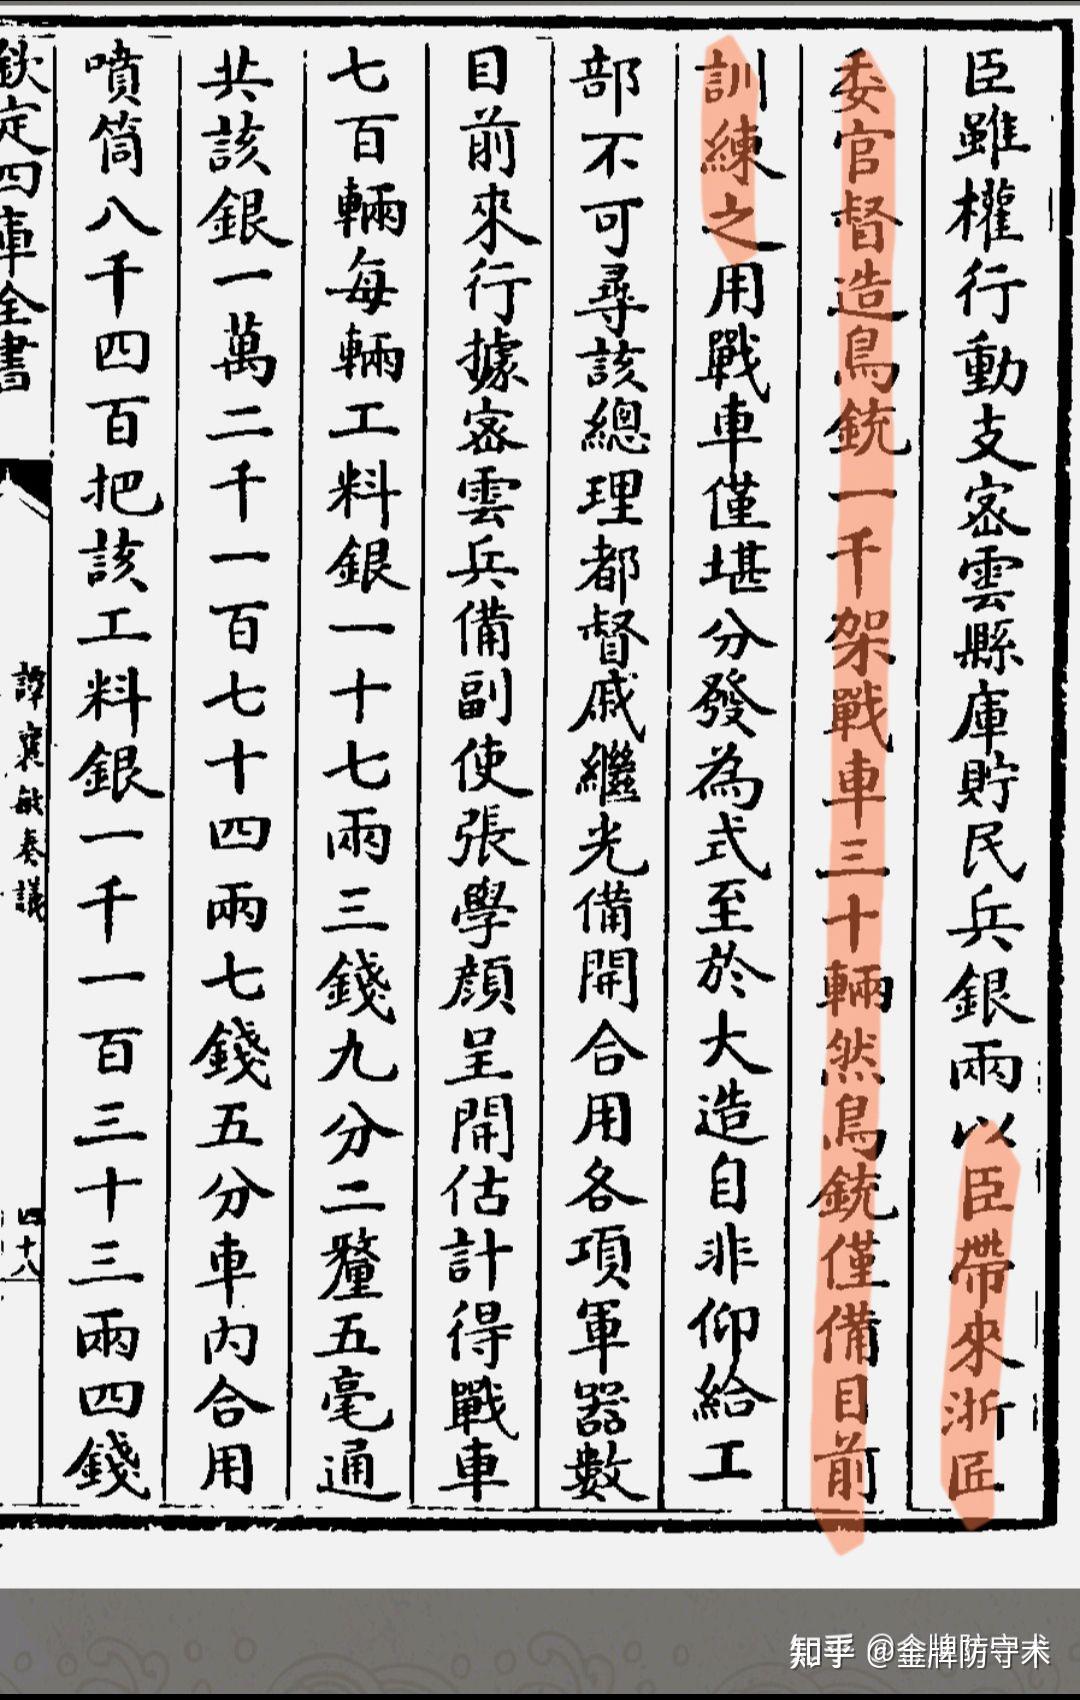 臣雖權行動支密雲縣庫貯民兵銀兩以臣帶來浙匠
委官督造鳥銃一千架戰車三十輛然鳥銃僅備目前
訓練之用戰車僅堪分發為式至於大造自非仰給工
部不可尋該總理都督戚繼光備開合用各項軍器數
目前來行據密雲兵備副使張學顏呈開估計得戰車
七百輛每輛工料銀一十七兩三錢九分二釐五毫通
共該銀一萬二千一百七十四兩七錢五分車内合用
噴筒八千四百把該工料銀一千一百三十三兩四錢
欽定四庫全書
譚襄敏奏議
四十八
知乎 @金牌防守术